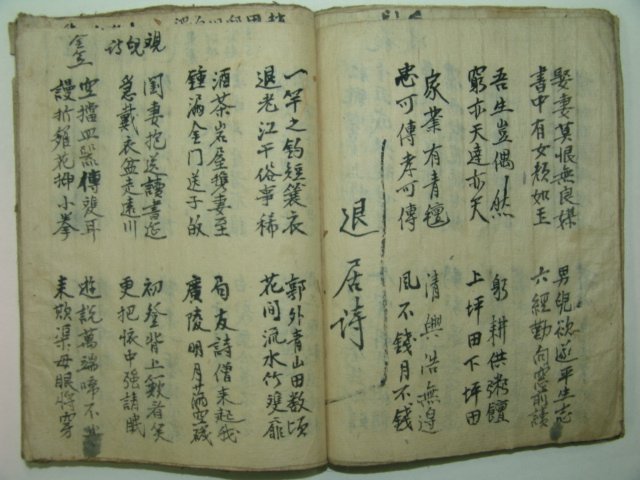 娶妻莫恨無良媒 男兒欲遂平生志
書中有女顔如玉 六經勤向窓前讀
吾生豈偶然 躬耕供粥饘
窮亦天達亦天 上坪田下坪田
家業有青氈 清興浩無邊
忠可傳孝可傳 風不錢月不錢
退居詩
一竿之釣短簑衣 郭外青山田数頃
退老江干俗事稀 花間流水竹雙扉
酒茶岩屋携妻至 友詩僧来起我
滿金門送子 廣陵明月滿空磯
詩
閨妻抱送讀書邊 初發背上歎者笑
急戴衣盆走遠川 更把懷中強請眠
空 傳雙耳 遊説萬端啼不
謾折雜花押小拳 来欺渠母眼将穿